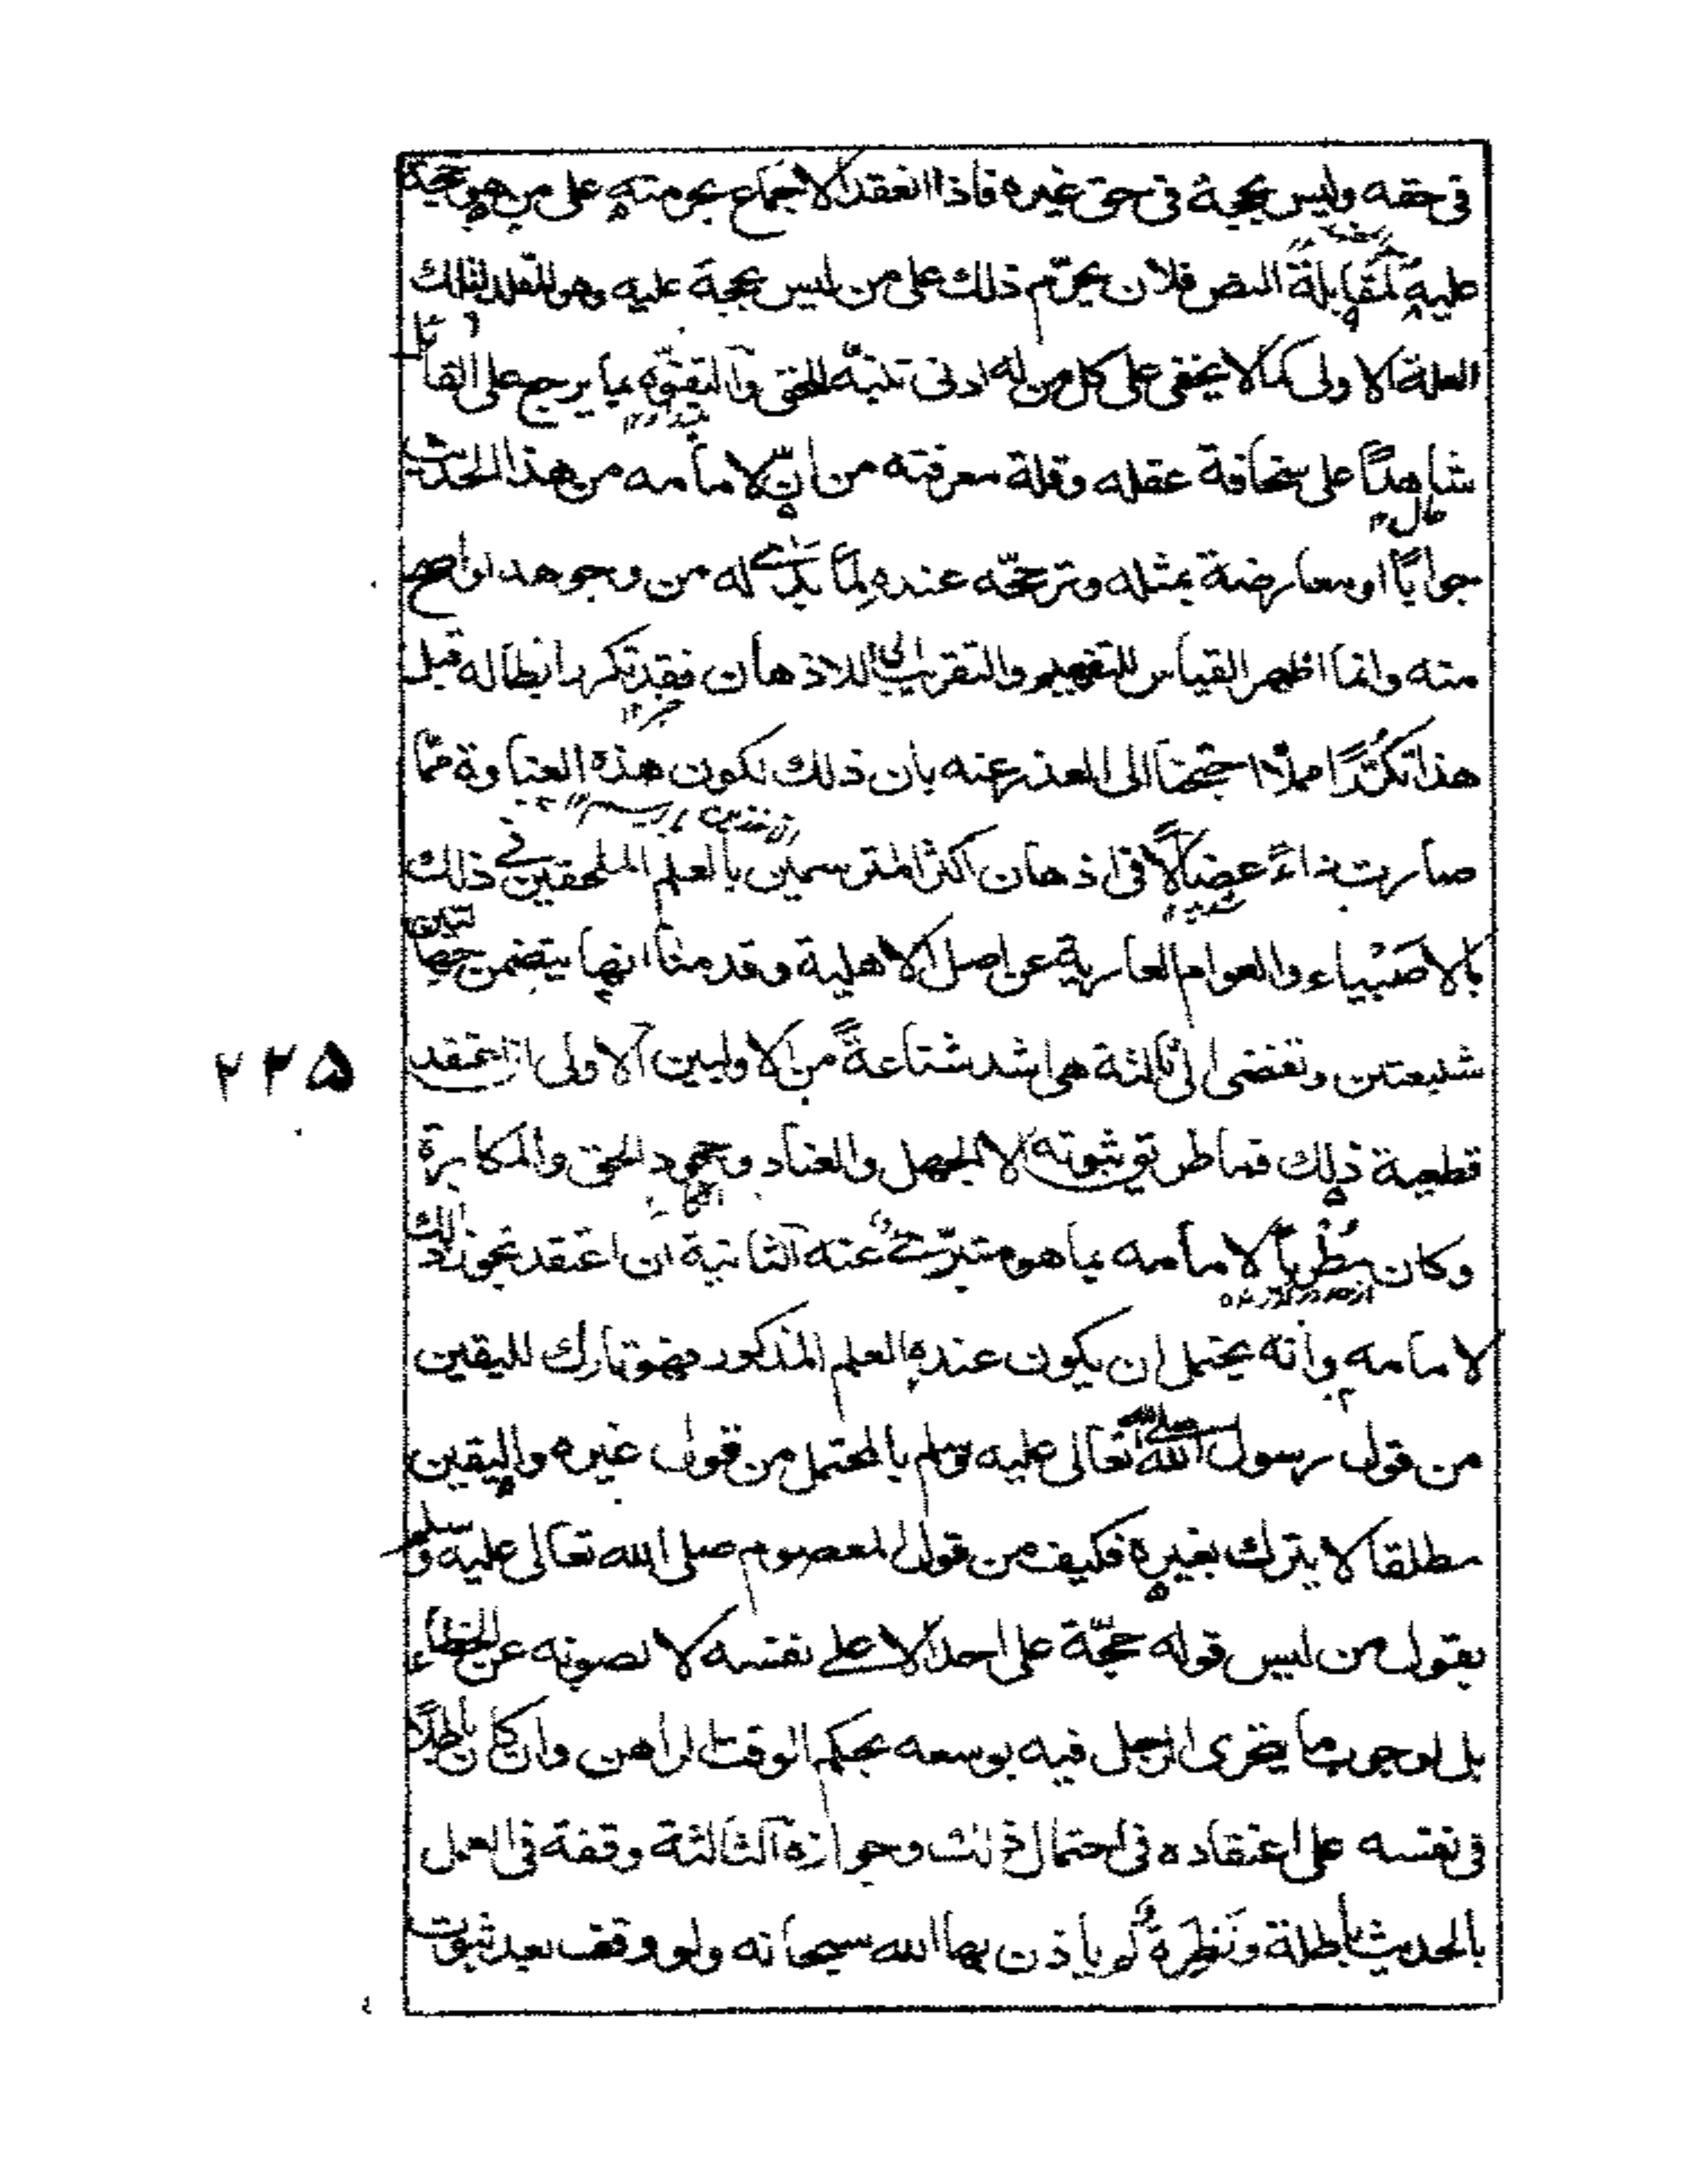 فى حقه وليس بحجة فى حق غيره فاذا انعقد الاجماع بحرمته على من هو حجة
عليه لمقابلة النص فلان يحرّم ذلك على من ليس بحجة عليه وهو المقلد لتلك
العلة الاولى كما لا يخفى على كل من له ادنى تنبّه للحق والتفوّه بما يرجع على القائل
شاهدًا على سخافة عقله وقلة معرفته من انّ لامامه من هذا الحديث
جوابًا او معارضة بمثله وترجحّه عنده لما بدا له من وجوه هذا واضح
منه وانما اظهر القياس للتفهيم والتقريب الى الاذهان فقد تكرر ابطاله قبل
هذا تكررًا مملّا احتجنا الى العذر عنه بان ذلك لكون هذه الغباوة ممّا
صارت داءً عضالًا فى اذهان اكثر المترسمين بالعلم الملحقين فى ذلك
بالاصبياء والعوام العارية عن اصل الاهلية وقدمنا انها يتضمن جهالتين
شنيعتين وتفضى الى ثالثة هى اشد شناعةً من الاوليين الاولى ان اعتقد
قطعية ذلك فما طريق ثبوته الا الجهل والعناد وجحود الحق والمكابرة
وكان مُطْرِيًا لامامه بما هو متبرّئ عنه الثانية ان اعتقد تجوز ذلك
لامامه وانه يحتمل ان يكون عنده العلم المذكور فهو تارك لليقين
من قول رسول الله صلى الله تعالى عليه وسلم بالمحتمل من قول غيره واليقين
مطلقا لا يترك بغيره فكيف من قول المعصوم صلى الله تعالى عليه وسلم
بقول من ليس قوله حجّة على احد الا على نفسه لا لصونه عن الخطاء
بل لوجوب ما يتحرى الرجل فيه بوسعه بحكم الوقت الراهن وان كان باطلًا
فى نفسه على اعتقاده فى احتمال ذلك وجوازه الثالثة وقفة فى العمل
بالحديث باطلة ونَظِرَةٌ لم ياذن بها الله سبحانه ولو وقف بعد ثبوت
۲۲۵